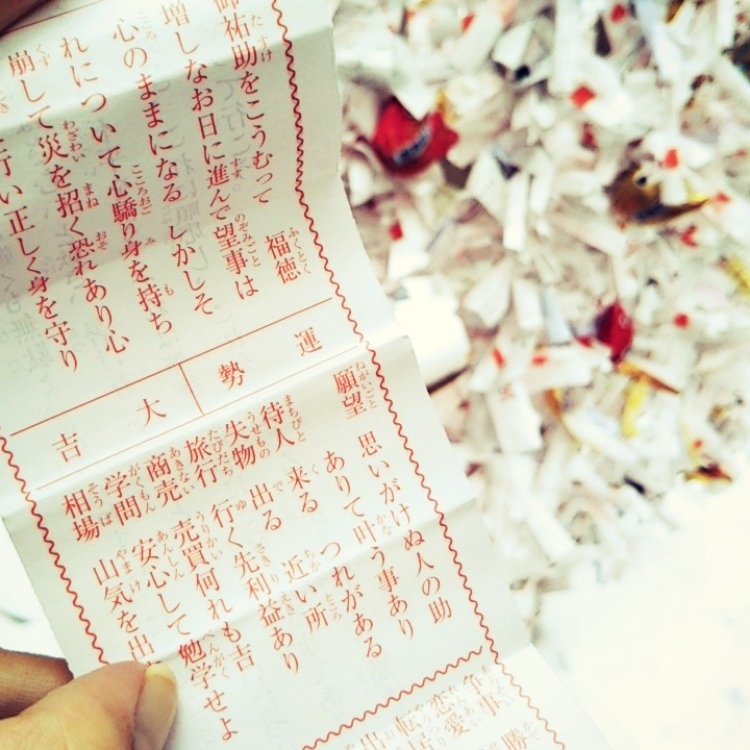 御祐助をこうむって 福徳
増しなお日に進んで望事は
心のままになる しかしそ
れについて心驕り身を持ち
崩して災を招く恐れあり心
行い正しく身を守り
運勢
大吉
願望 思いがけぬ人の助
ありて叶う事あり
待人 来る つれがある
失物 出る 近い所
旅行 行く先利益あり
商売 売買何れも吉
学問 安心して勉学せよ
相場 山気を出
争事 勝
恋愛
転居
出